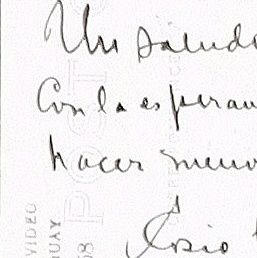 Un saludo
Con la esperan
hacer meno
VIDEO
UAY
POST